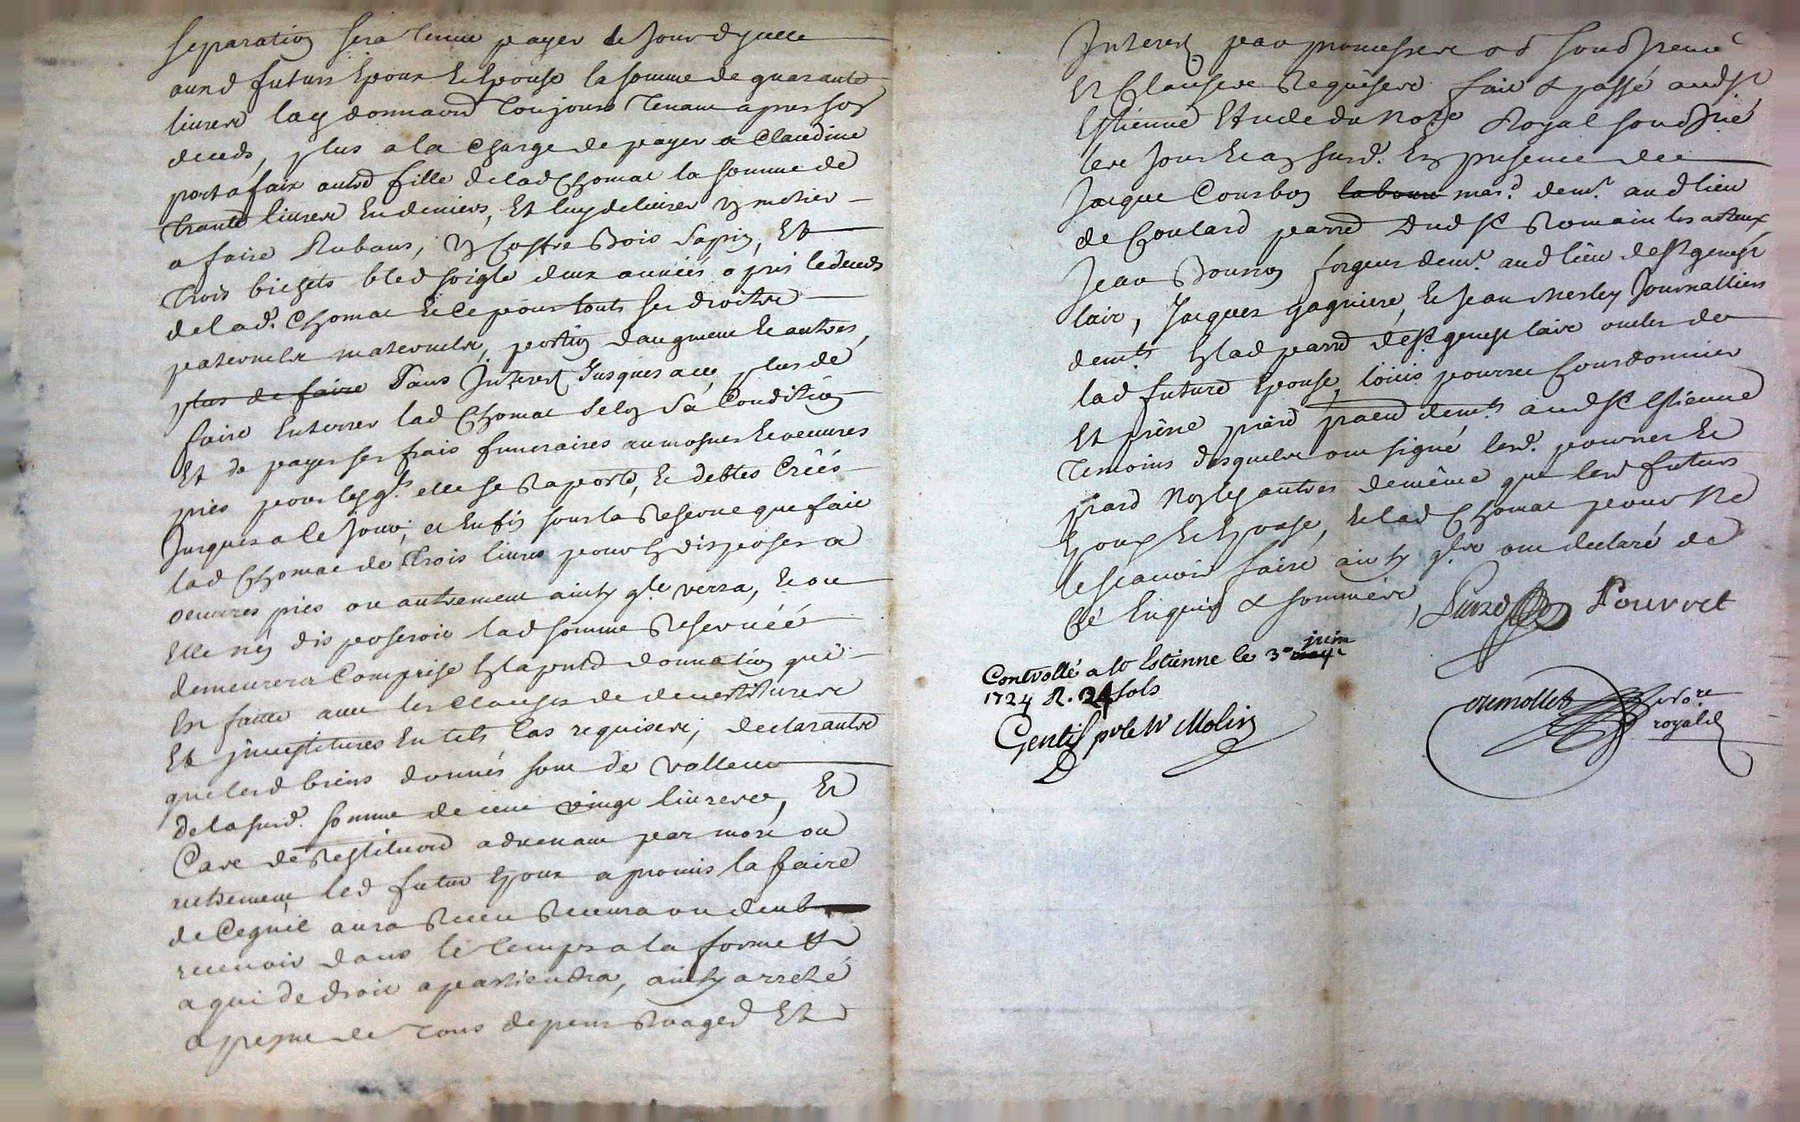 separation sera tenue payer le jour dycelle
ausd futurs Epoux & Epouse la somme de quarante
livres lad donnante toujours tenant apres son
deceds, plus a la charge de payer a Claudine
portafaix autre fille de lad Chomat la somme de
trante livres en deniers, Et luy delivrer un metier
a faire Rubans, un Coffre Bois Sapin, Et
trois bichets bled soigle deux années apres le deceds
de lad. Chomat & ce pour touts ses droits
paternels maternels, portion daugment & autres,
plus de faire sans Interest jusques a ce, plus de
faire enterrer lad Chomat selon sa Condition
Et de payer ses frais funeraires aumosnes & oeuvres
pies pour lesqls. elle se raporte, & debtes Créés
jusques a ce jour; et enfin sous la Reserve que fait
lad Chomat de trois livres pour en disposer a
oeuvres pies ou autrement ainsy qle verra, & ou
Elle n'en disposeroit lad somme Reservéé
demeurera Comprise en la pnte donnation qui
En faitte avec les clauses de devestitures
Et jnvestitures en tels cas requises; declarants
que lesd biens donnés sont de valleur
de la susd. somme de cent vingt livres, Et
Cas de Restitution advenant par mort ou
autrement led futur Epoux a promis la faire
de ce quil aura Receu Recevra ou deub
recevoir dans le temps a la forme &
a qui de droit apartiendra, ainsy arresté
a peyne de tous depens domages Et
Interest par promesses ob soubmi
Et Clauses Requises fait & passé aud St
Estienne Etude du nore Royal soubsigné
les jour & an susd. En presence de
Jacque Courbon labour mard. demt. aud lieu
de Coulard parre dud St Romain les atheux
Jean Bonnon forgeur demt. aud lieu de St genest
lair, Jacques gagniere, & Jean Merley Journalliers
demts en lad parre de St genest lair oncles de
lad future Epouse, Loüis pourret Cordonnier
Et piêrre piard praen demts aud St Estienne
temoins desquels ont signé lesd. pourret &
piard non les autres demême que lesd futurs
Epoux & Epouse, & lad Chomat pour ne
le scavoir faire ainsy qls ont declaré de
ce Enquis & sommés, Piard Pourret
Controllé a St Estienne le 3e may juin
1724 R. 24 sols
Gentil pr le Sr Molin
oumollet nore
royal